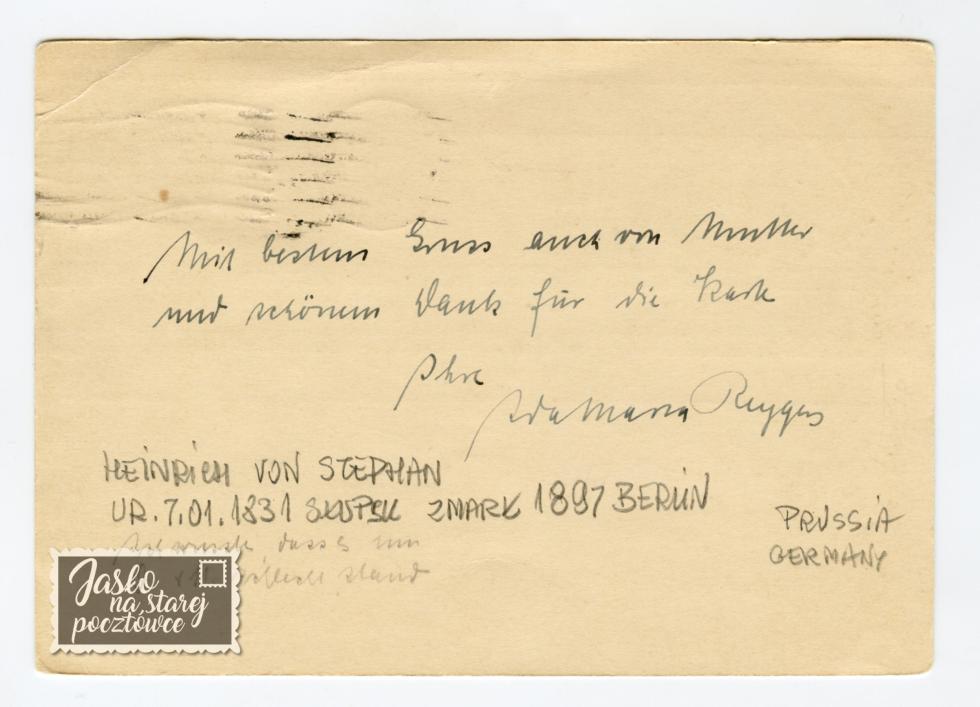 Mit bestem Gruss auch von Mutter
und schönem Dank für die Karte
Ihre
Ida Maria
HEINRICH VON STEPHAN
UR. 7.01.1831 SŁUPSK ZMARŁ 1897 BERLIN
PRUSSIA
GERMANY
dass es um
stand
Jasło
na starej
pocztówce